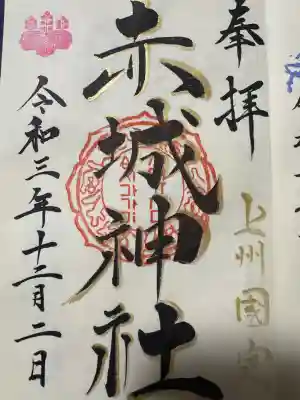 奉拝
上州國
赤城神社
令和三年十二月二日